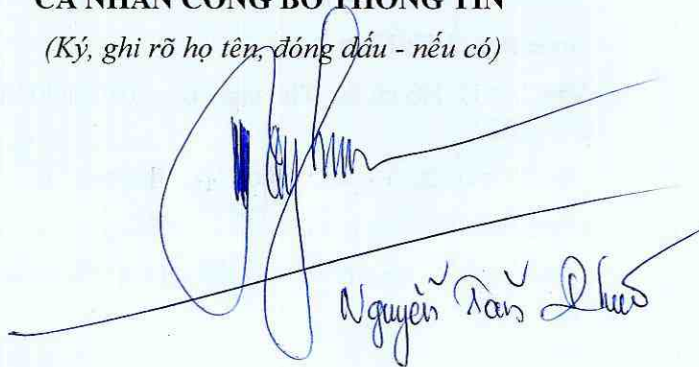 CÁ NHÂN CÔNG BỐ THÔNG TIN
(Ký, ghi rõ họ tên, đóng dấu - nếu có)
Nguyễn Tấn